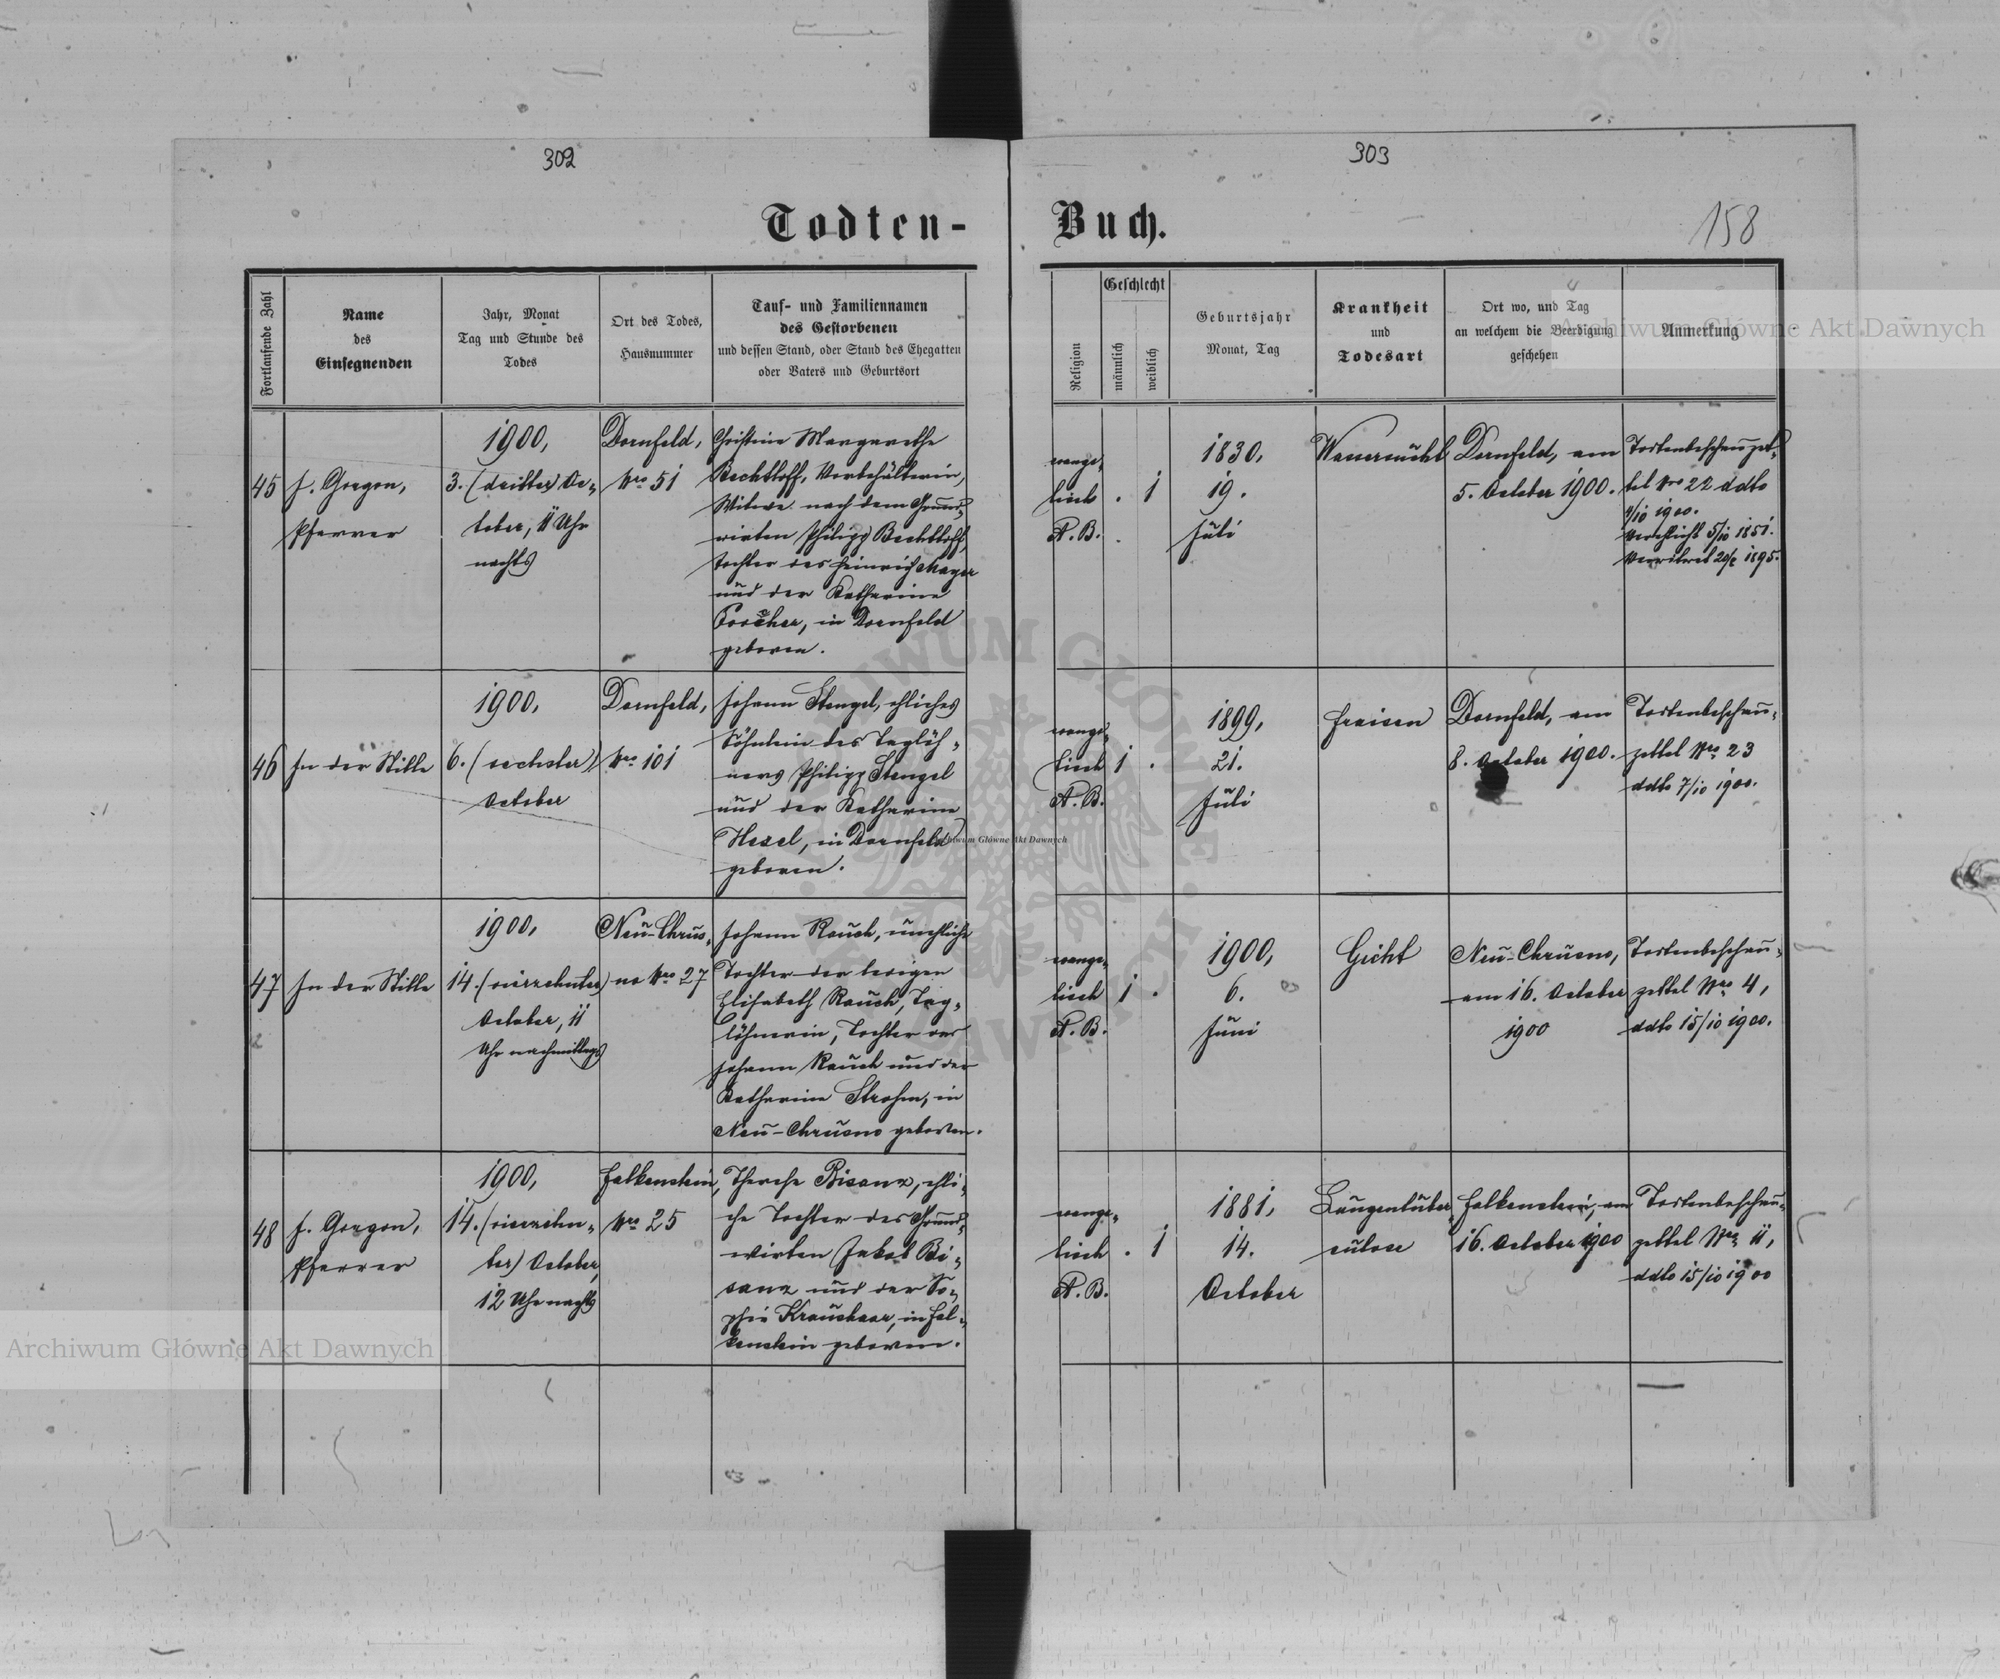 302
303
158
Todten-
Buch.
Fortlaufende Zahl
Name
des
Einsegnenden
Jahr, Monat
Tag und Stunde des
Todes
Ort des Todes,
Hausnummer
Tauf- und Familiennamen
des Gestorbenen
und dessen Stand, oder Stand des Ehegatten
oder Vaters und Geburtsort
Religion
Geschlecht
männlich
weiblich
Geburtsjahr
Monat, Tag
Krankheit
und
Todesart
Ort wo, und Tag
an welchem die Beerdigung
geschehen
Anmerkung
Archiwum Główne Akt Dawnych
45
J. Gorgon,
Pfarrer
1900,
3. (dritter) Oc-
tober, 11 Uhr
nachts
Dornfeld,
Nro 51
Christine Margarethe
Bechtloff, Vorbehälterin,
Witwe nach dem Grund-
wirten Philipp Bechtloff,
Tochter des Heinrich Mayer
und der Katharine
in Dornfeld
geboren.
evange-
lisch
A. B.
. 1
1830,
19.
Juli
Wassersucht
Dornfeld, am
5. October 1900.
Todtenbeschauzet-
tel Nro 22 ddto
4/10 1900.
Verehlicht 5/10 1851.
Verwitwet 1895.
46
In der Stille
1900,
6. (sechster)
October
Dornfeld,
Nro 101
Johann Stengel, ehliches
Söhnlein des Taglöh-
ners Philipp Stengel
und der Katharine
Hesel, in Dornfeld
geboren.
evange-
lisch
A. B.
1 .
1899,
21.
Juli
Fraisen
Dornfeld, am
8. October 1900.
Todtenbeschau-
zettel Nro 23
ddto 7/10 1900.
Archiwum Główne Akt Dawnych
47
In der Stille
1900,
14. (vierzehnter)
October, 11
Uhr nachmittags
Neu-Chrus-
no Nro 27
Johann Rauch, unehliche
Tochter der ledigen
Elisabeth Rauch, Tag-
löhnerin, Tochter des
Johann Rauch und der
Katharine Strohm, in
Neu-Chrusno geboren.
evange-
lisch
A. B.
1 .
1900,
6.
Juni
Gicht
Neu-Chrusno,
am 16. October
1900
Todtenbeschau-
zettel Nro 4,
ddto 15/10 1900.
48
J. Gorgon,
Pfarrer
1900,
14. (vierzehn-
ter) October,
12 Uhr nachts
Falkenstein,
Nro 25
Therese Bisanz, ehli-
che Tochter des Grund-
wirten Jakob Bi-
sanz und der So-
phie Kraushaar, in Fal-
kenstein geboren.
evange-
lisch
A. B.
. 1
1881,
14.
October
Lungentuber-
culose
Falkenstein, am
16. October 1900
Todtenbeschau-
zettel Nro 11,
ddto 15/10 1900
Archiwum Główne Akt Dawnych